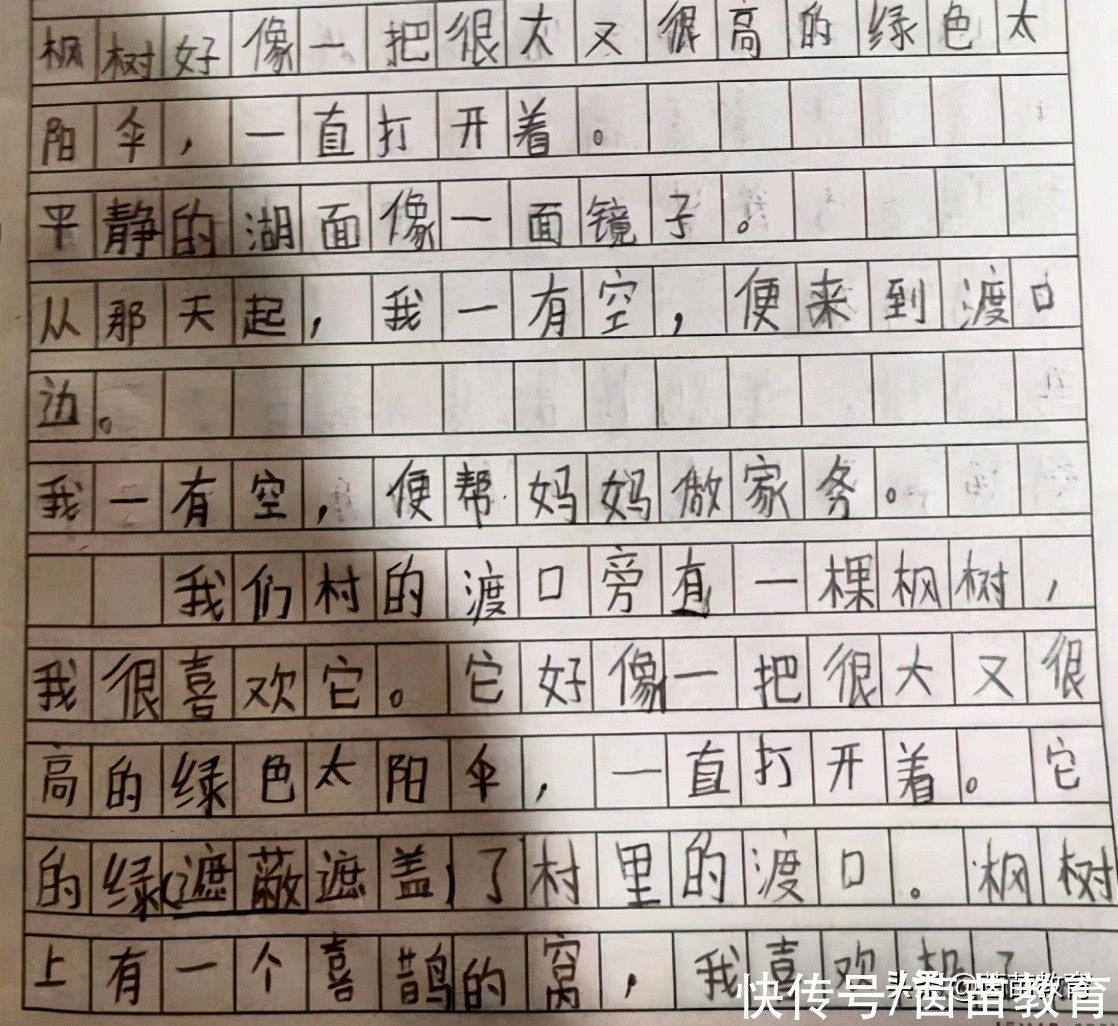 枫树好像一把很大又很高的绿色太
阳伞，一直打开着。
平静的湖面像一面镜子。
从那天起，我一有空，便来到渡口
边。
我一有空，便帮妈妈做家务。
我们村的渡口旁有一棵枫树，
我很喜欢它。它好像一把很大又很
高的绿色太阳伞，一直打开着。它
的绿(遮蔽遮盖)了村里的渡口。枫树
上有一个喜鹊的窝，我喜欢
快传号/茵苗教育
@茵苗教育